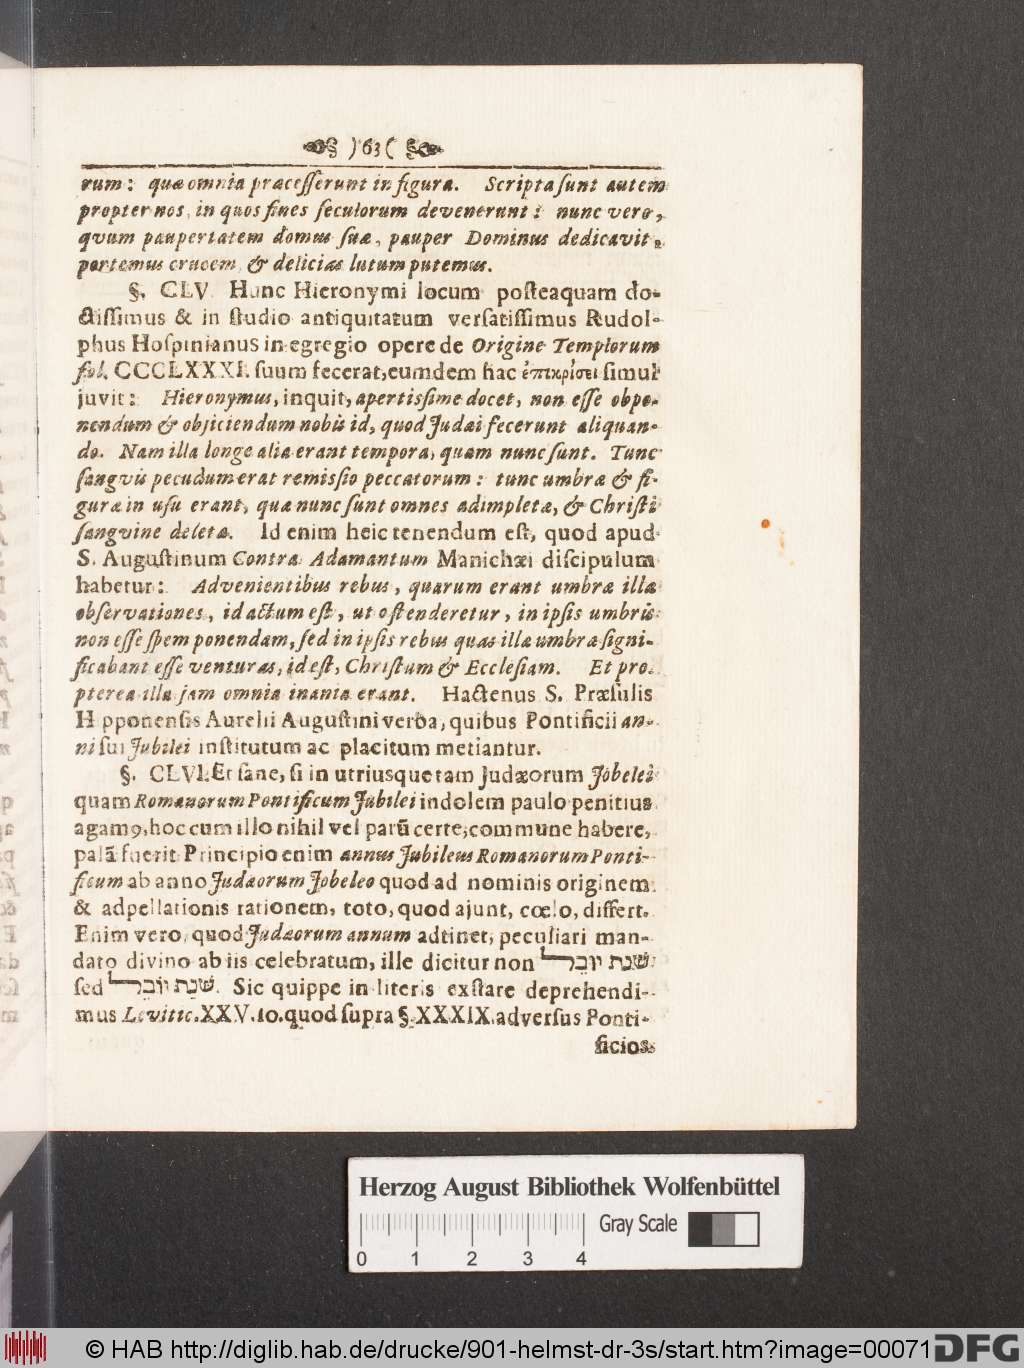 )63(
rum: quæ omnia præcesserunt in figura. Scripta sunt autem
propter nos, in quos fines seculorum devenerunt: nunc vero,
qvum paupertatem domus suæ, pauper Dominus dedicavit,
portemus crucem, & delicias lutum putemus.
§. CLV. Hunc Hieronymi locum posteaquam do-
ctissimus & in studio antiquitatum versatissimus Rudol-
phus Hospinianus in egregio opere de Origine Templorum
fol. CCCLXXXI. suum fecerat, eumdem hac ἐπικρίσει simul
juvit: Hieronymus, inquit, apertissime docet, non esse obpo-
nendum & objiciendum nobis id, quod Judæi fecerunt aliquan-
do. Nam illa longe alia erant tempora, quam nunc sunt. Tunc
sangvis pecudum erat remissio peccatorum: tunc umbræ & fi-
guræ in usu erant, quæ nunc sunt omnes adimpletæ, & Christi
sangvine deletæ. Id enim heic tenendum est, quod apud
S. Augustinum Contra Adamantum Manichæi discipulum
habetur: Advenientibus rebus, quarum erant umbræ illæ
observationes, id actum est, ut ostenderetur, in ipsis umbris
non esse spem ponendam, sed in ipsis rebus quas illæ umbræ signi-
ficabant esse venturas, id est, Christum & Ecclesiam. Et pro-
pterea illa jam omnia inania erant. Hactenus S. Præsulis
Hipponensis Aurelii Augustini verba, quibus Pontificii an-
ni sui Jubilei institutum ac placitum metiantur.
§. CLVI. Et sane, si in utriusque tam Judæorum Jobelei
quam Romanorum Pontificum Jubilei indolem paulo penitius
agamꝰ, hoc cum illo nihil vel parũ certe, commune habere,
palã fuerit. Principio enim annus Jubileus Romanorum Ponti-
ficum ab anno Judæorum Jobeleo quod ad nominis originem
& adpellationis rationem, toto, quod ajunt, cœlo, differt.
Enim vero, quod Judæorum annum adtinet, peculiari man-
dato divino ab iis celebratum, ille dicitur non שׁנת יובל
sed שׁנת יובל. Sic quippe in literis exstare deprehendi-
mus Levitic. XXV. 10. quod supra §. XXXIX. adversus Ponti-
ficios
Herzog August Bibliothek Wolfenbüttel
Gray Scale
0 1 2 3 4
© HAB http://diglib.hab.de/drucke/901-helmst-dr-3s/start.htm?image=00071
DFG